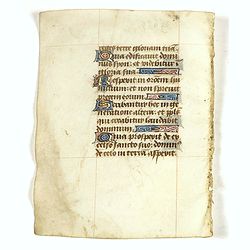 terre gloriam tuā.
Quia edificavit domi
nus syon: et videbitur i
gloria sua.
Respexit in orōem hu
milium: et non sprevit
precem eorum.
Scribantur hec in ge
neratione altera: et po
lus qui creabitur laudabit
dominum.
Quia prospexit de ex
celso sancto suo: domin'
de celo in terrā aspexit.